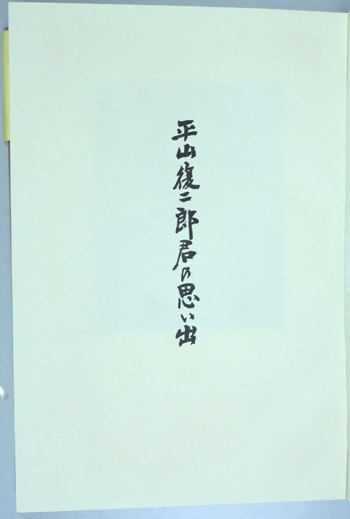 平山復二郎君の思い出